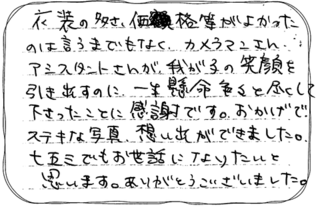 衣装の多さ、価格等がよかった
のは言うまでもなく、カメラマンさん、
アシスタントさんが、我が子の笑顔を
引き出すのに、一生懸命 尽くして
下さったことに感謝です。おかげで
ステキな写真、想い出ができました。
七五三でもお世話になりたいと
思います。ありがとうございました。